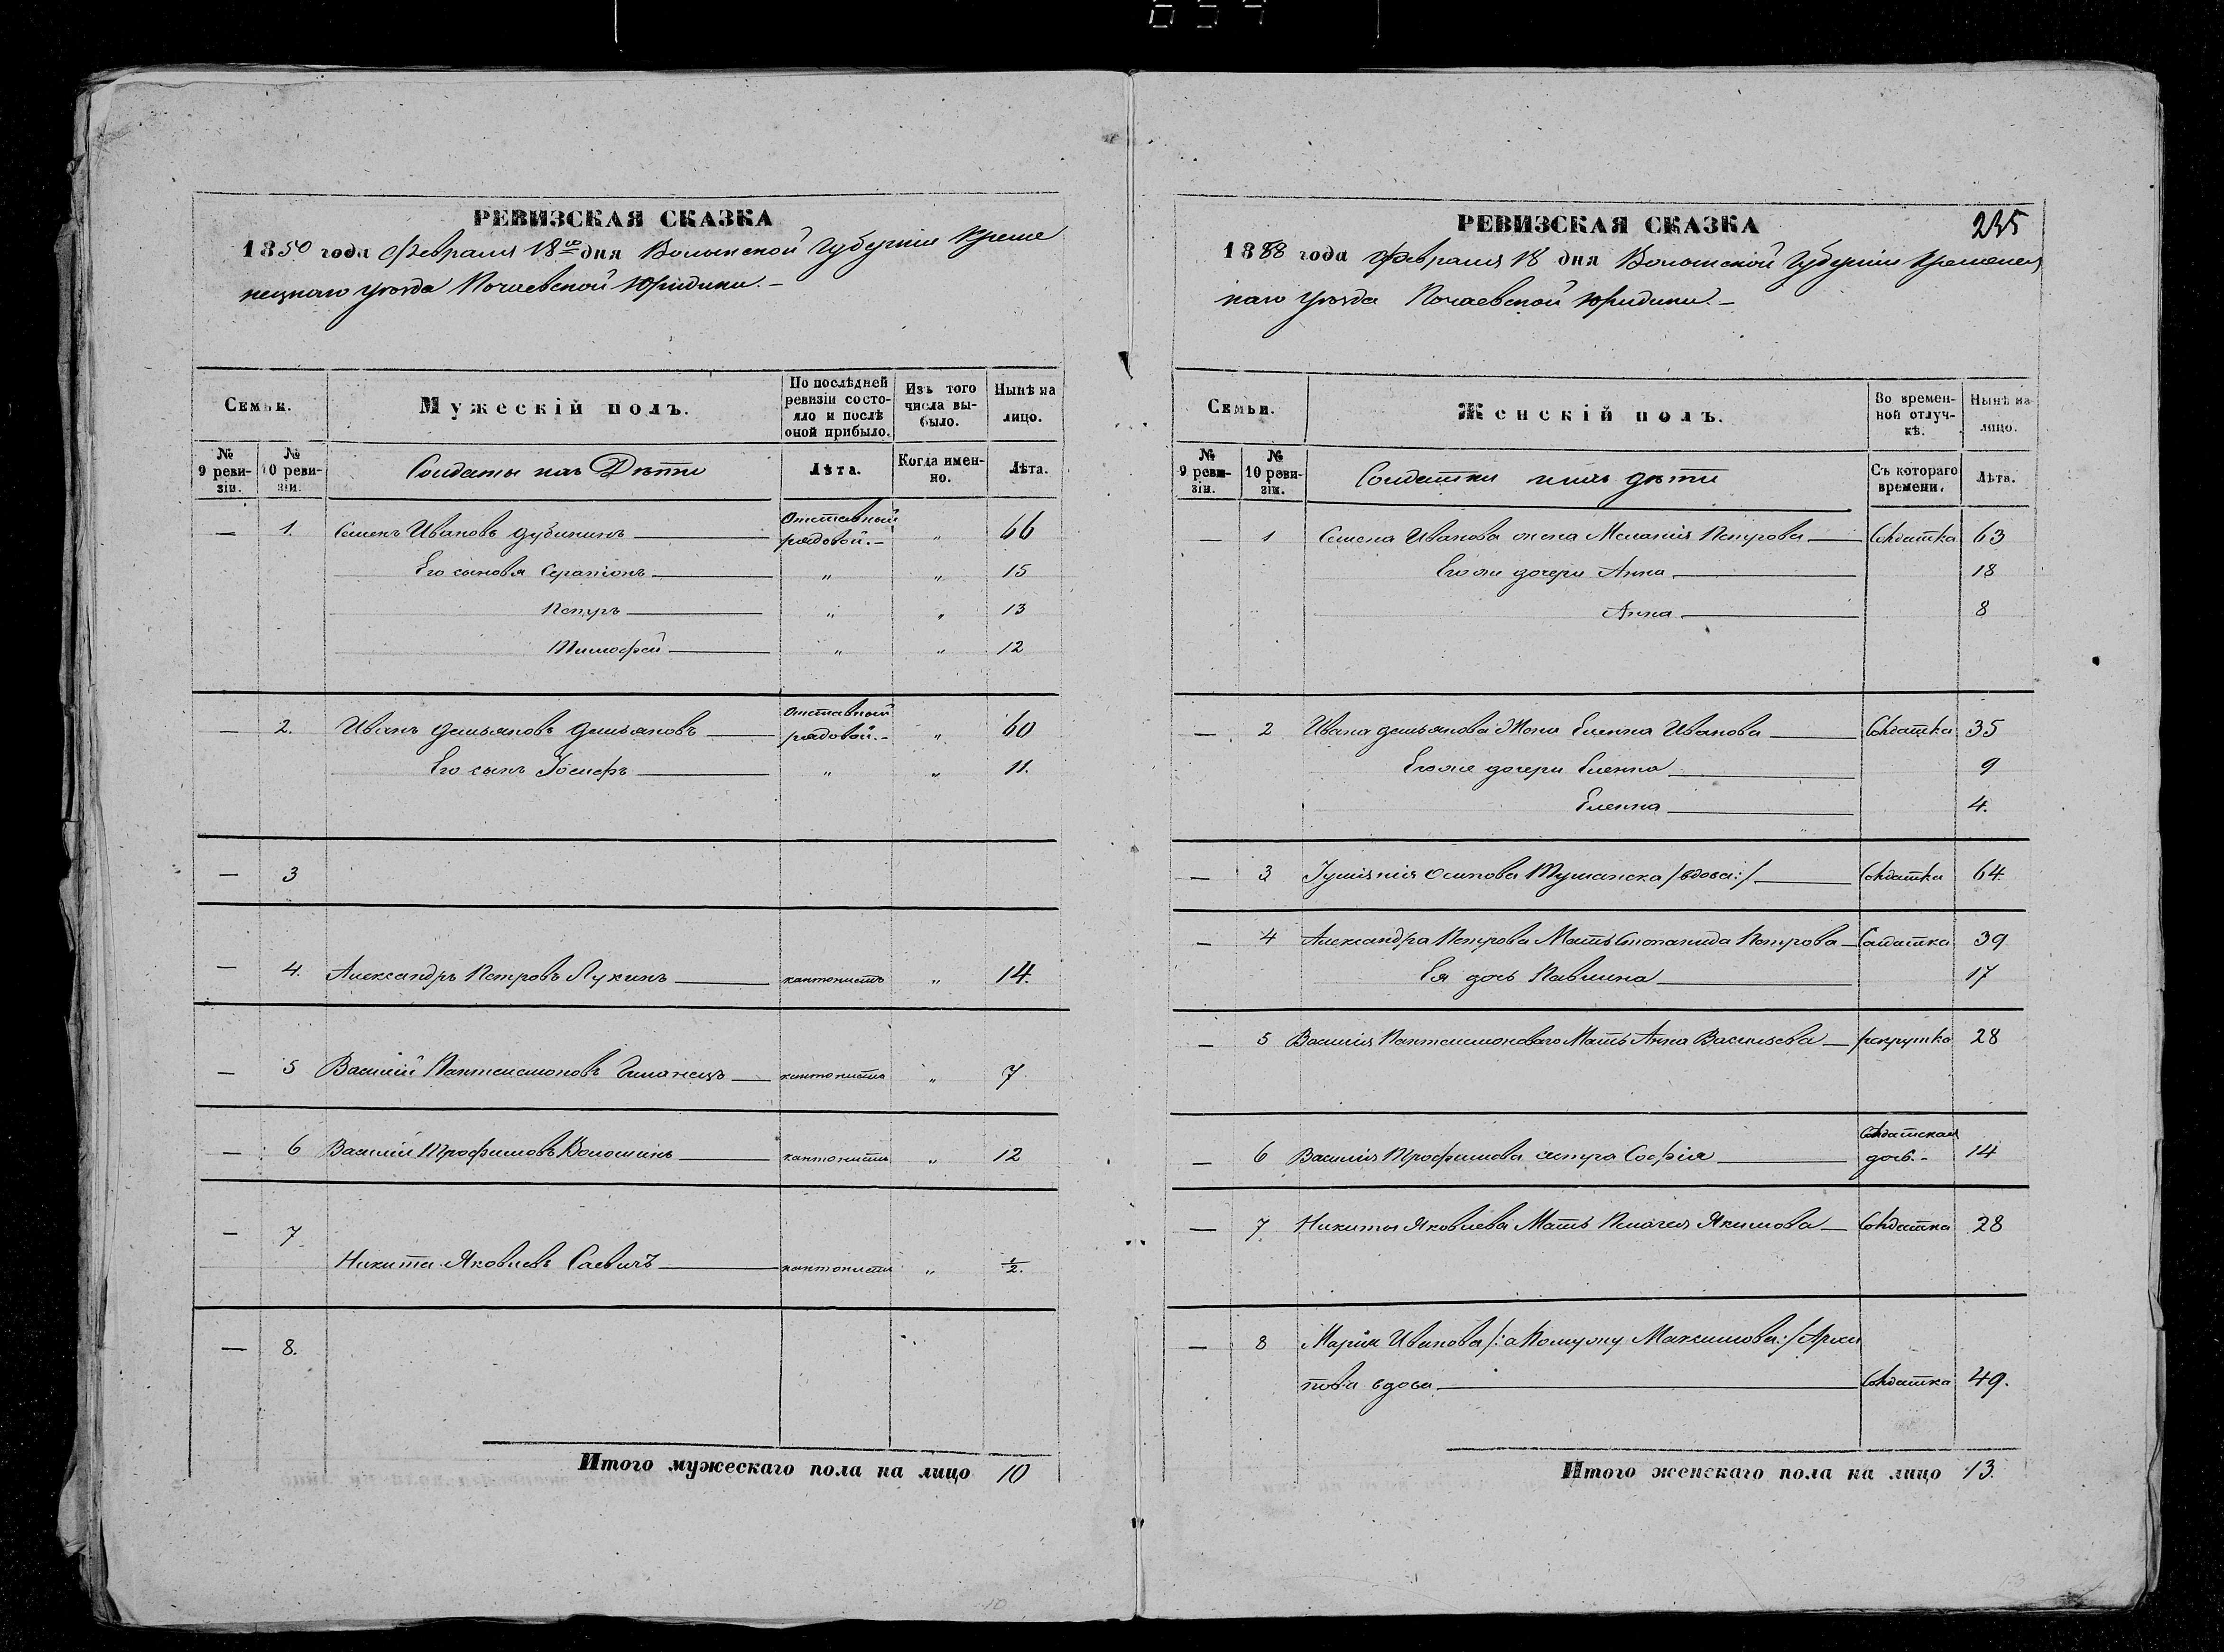 РЕВИЗСКАЯ СКАЗКА
1850 года Февраля 18го дня Волынской Губерніи Креме
нецкаго уѣзда Почаевской Юридики. –
Семьи.
Мужескій полъ.
По послѣдней ревизіи состояло и послѣ оной прибыло.
Изъ того числа выбыло.
Нынѣ на лицо.
№ 9 ревизіи.
№ 10 ревизіи.
Солдаты ихъ Дѣти
Лѣта.
Когда именно.
Лѣта.
— 1. Семенъ Ивановъ Дубининъ Отставный рядовой. – " 66
Его сыновья Серапіонъ " " 15
Петръ " " 13
Тимофей " " 12
— 2. Иванъ Демьяновъ Демьяновъ Отставный рядовой. – " 60
Его сынъ Іосифъ " " 11.
— 3
— 4. Александръ Петровъ Лукинъ кантонистъ " 14.
— 5 Василій Пантелимоновъ кантонистъ " 7
— 6 Василій Трофимовъ Волошинъ кантонистъ " 12
— 7 Никита Яковлевъ Саевичъ кантонистъ " ½.
— 8.
Итого мужескаго пола на лицо 10
235
РЕВИЗСКАЯ СКАЗКА
1858 года Февраля 18 дня Волынской Губерніи Кременец
каго уѣзда Почаевской Юридики. –
Семьи.
Женскій полъ.
Во временной отлучкѣ.
Нынѣ на лицо.
№ 9 ревизіи.
№ 10 ревизіи.
Солдатки и ихъ дѣти
Съ котораго времени.
Лѣта.
— 1 Семена Иванова жена Меланія Петрова Солдатка 63
Его же дочери Анна 18
Анна 8
— 2 Ивана Демьянова Жена Еленна Иванова Солдатка 35
Его же дочери Еленна 9
Еленна 4.
— 3 Осипова Туманска /вдова:/ Солдатка 64.
— 4 Александра Петрова Мать Степанида Петрова Салдатка 39
Ея дочь Павлина 17
— 5 Василія Пантелимоноваго Мать Анна Васильева рекрутка 28
— 6 Василія Трофимова сестра Софія Солдатская дочь. – 14
— 7 Никиты Яковлева Мать Пелагея Якимова Солдатка 28
— 8 Марія Иванова /: а по мужу Максимова:/ Архи
пова вдова Солдатка 49.
Итого женскаго пола на лицо 13.